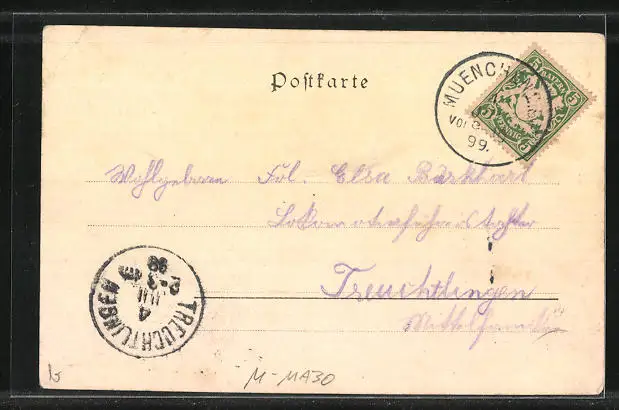 Postkarte
MUENCHEN
VOR
99.
5 BAYERN 5
5 PFENNIG 5
Wohlgeboren Frl. Elsa Burkhart
Lokomotivführerstochter
Treuchtlingen
Mittelfranken
TREUCHTLINGEN
4 JUL
99
M-MA30